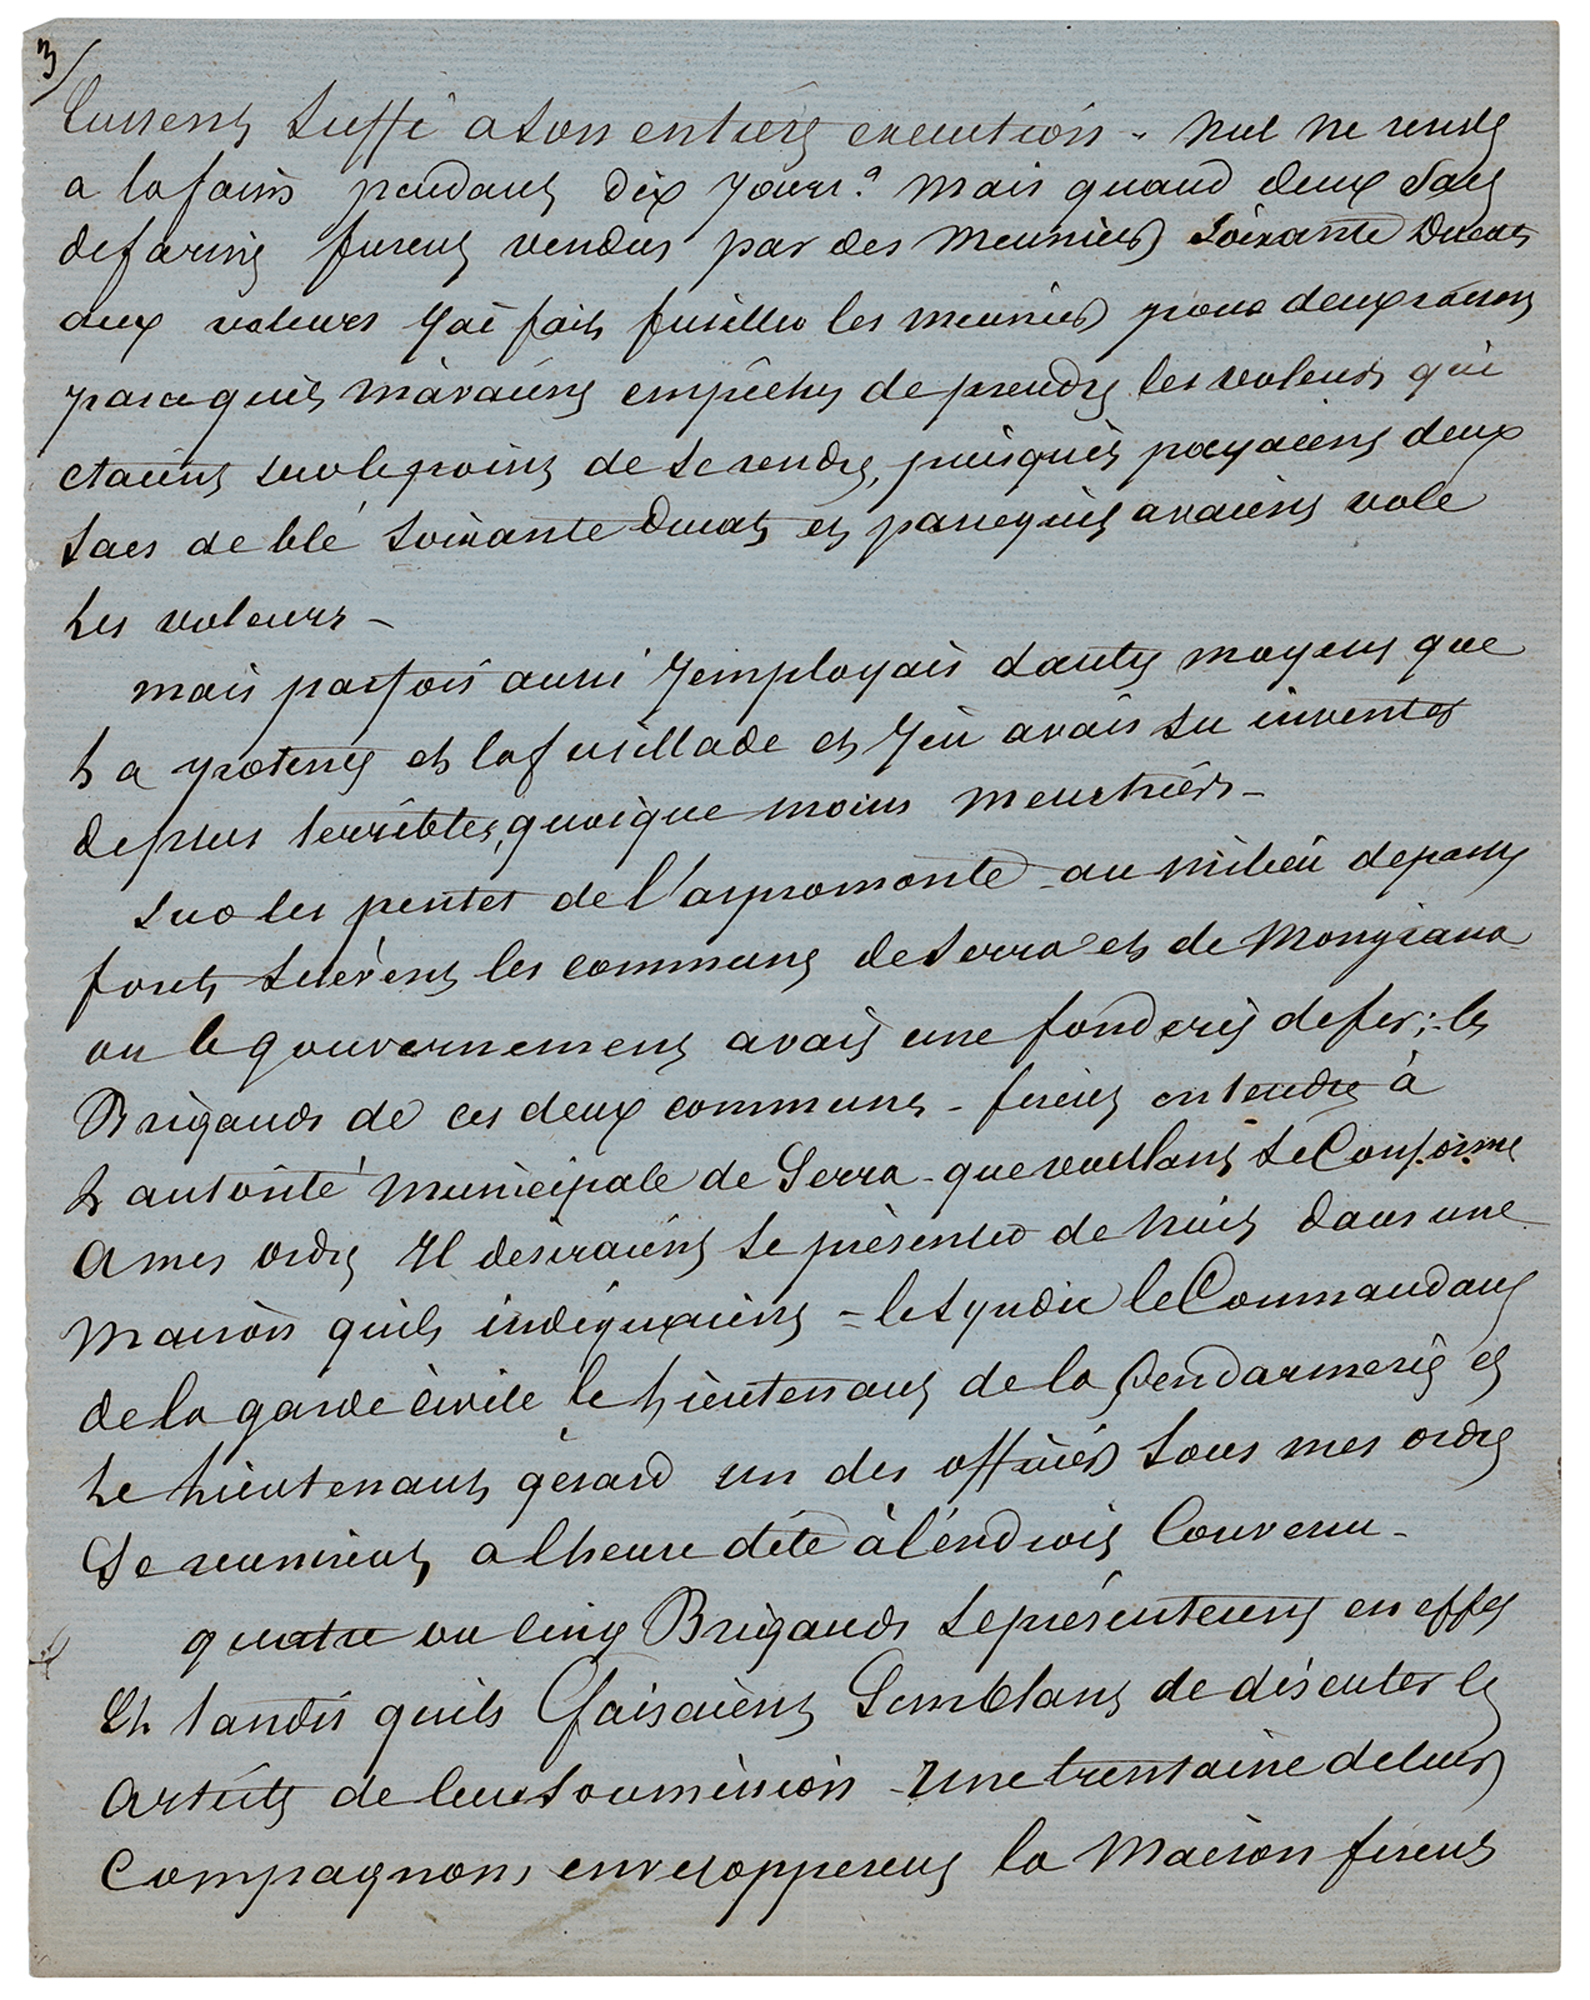 3/
Eussent suffi a son entière execution - nul ne rendit
a la faim pendant dix jours. mais quand deux sacs
de farine furent vendus par des meuniers soixante Ducats
aux voleurs j'ai fait fusiller les meuniers pour deux raisons
parce quils m'avaient empêchés de prendre les voleurs qui
etaient sur le point de se rendre, puisquils payaient deux
sacs de blé soixante Ducats et parcequils avaient volé
les voleurs -
mais parfois aussi j'employais dautres moyens que
la potence et la fusillade et j'en avais su inventer
de plus terribles, quoique moins meurtriers -
sur les pentes de l'aspromonte - au milieu de passes
forets s'elèvent les communes de Serra et de Mongiana
ou le gouvernement avait une fonderie de fer; - les
Brigands de ces deux communes - firent entendre à
L autorité municipale de Serra - que voullant se Conforme
a mes ordres Il desiraient se présenter de nuit dans une
maison quils indiquaient = le syndic le Commandant
de la garde civile le Lieutenant de la Gendarmerie et
Le Lieutenant gérard un des officiers sous mes ordres
Se reunirent a lheure dite à l'éndroit Convenu -
quatre ou cinq Brigands se présenterent en effet
Et tandis quils faisaient Semblant de discuter les
Articles de leur soumission - une trentaine de leurs
Compagnons envelopperent la Maison firent